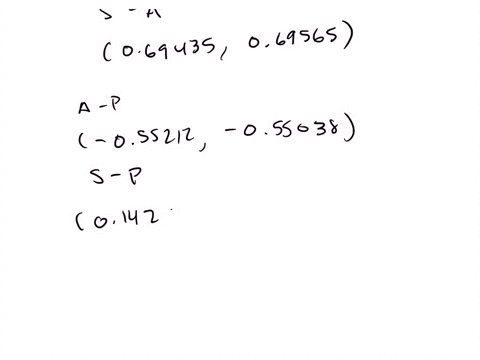 S - A
(0.69435, 0.69565)
A - P
(-0.55212, -0.55038)
S - P
(0.142